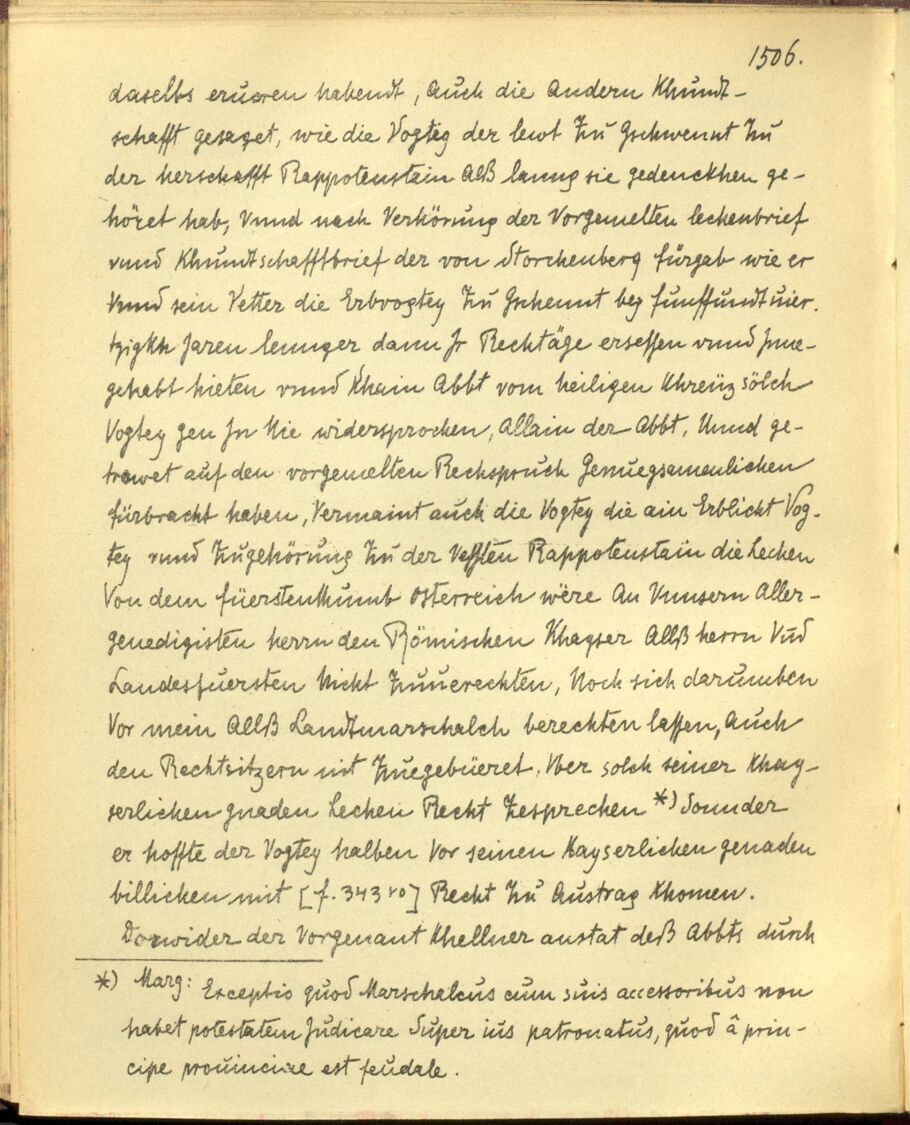 1506.
daselbs eruoren habendt, Auch die Andern Khundt-
schafft gesaget, wie die Vogteÿ der lewt Zu Gschwennt Zu
der herschafft Rappotenstain Alß lanng sie gedenckhen ge-
höret hab, Vnnd nach Verhörung der Vorgemelten lechenbrief
vnnd Khundtschafftbrief der von Storchenberg fürgab wie er
Vnnd sein Vetter die Erbvogtey Zu Gschennt bey funffundtuier-
tzigkh Jaren lennger dann Jr Rechtäge ersessen vnnd Jnne-
gehabt hieten vnnd Khain Abbt vom heiligen Khreüz sölch
Vogtey gen Jn Nie widersprochen, Allain der Abbt, Vnnd ge-
trawet auf den vorgemelten Rechspruch Genuegsamenlichen
fürbracht haben, Vermaint auch die Vogtey die ain Erblicht Vog-
tey vnnd Zugehörung Zu der Vessten Rappotenstain die Lechen
Von dem füerstenthumb Osterreich wëre An Vnnsern Aller-
genedigisten herrn den Römischen Khayser Allß herrn Vnd
Landesfuersten Nicht Zuuerechten, Noch sich darumben
Vor mein Allß Landtmarschalch berechten lassen, Auch
den Rechtsitzern nit Zuegebüeret, Vber solch seiner Khay-
serlichen gnaden Lechen Recht Zesprechen *) Sonnder
er hoffte der Vogtey halben Vor seinen Kayserlichen genaden
billichen mit [f. 343 vo] Recht Zu Austrag Khomen.
Dorwider der Vorgenant Khellner anstat deß Abbts durch
*) Marg: Exceptio quod Marschalcus cum suis accessoribus non
habet potestatem Judicare Super ius patronatus, quod â prin-
cipe prouinciae est feudale.